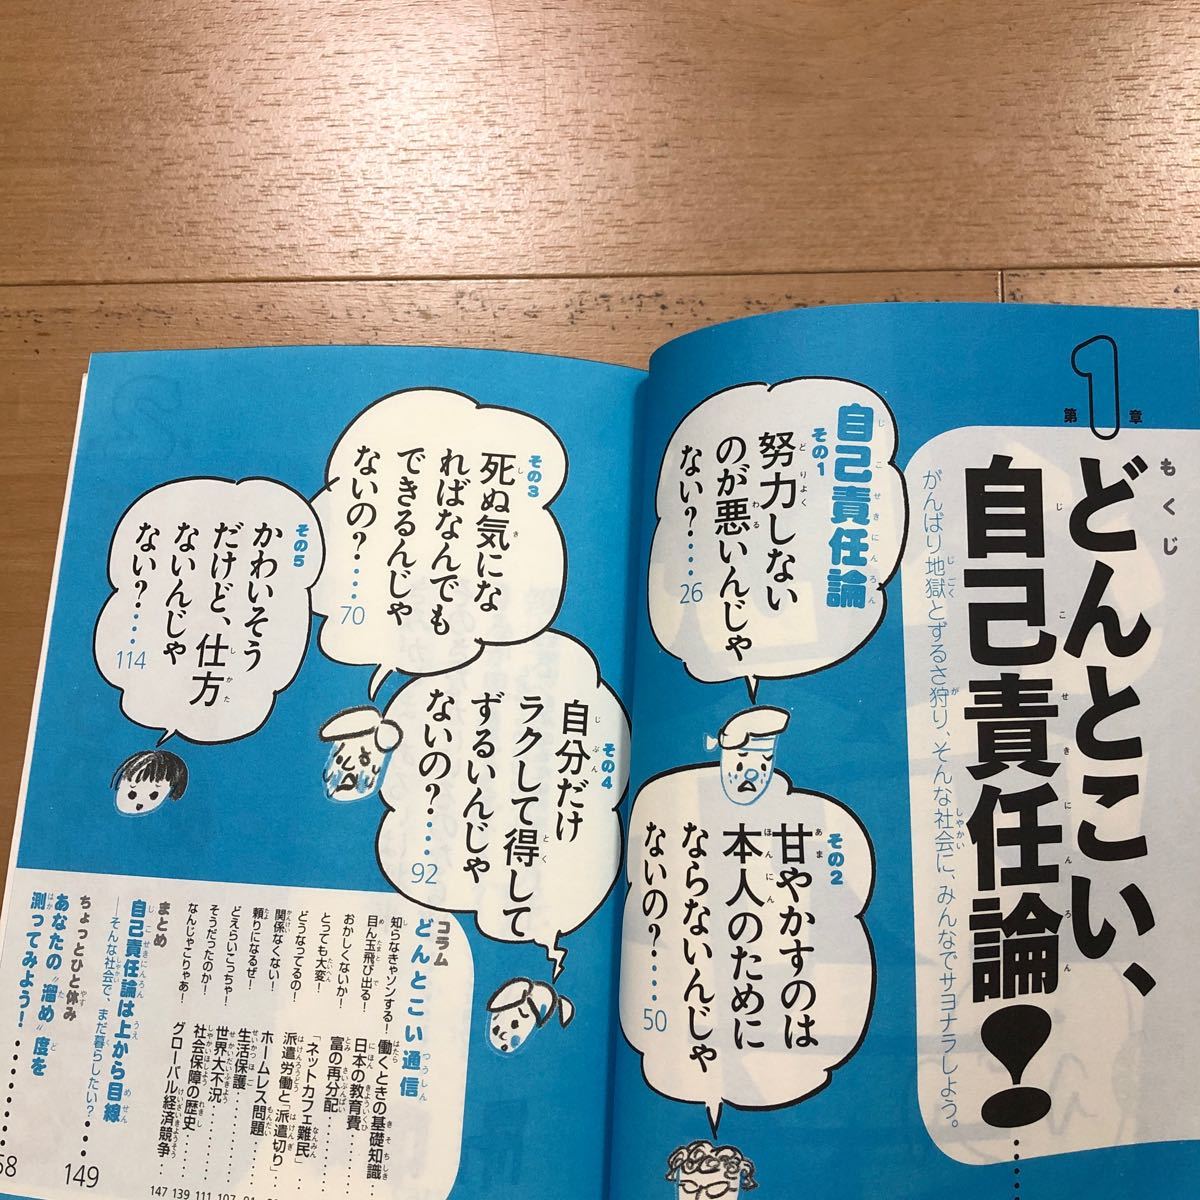 もくじ
第1章
どんとこい、
自己責任論!
がんばり地獄とずるさ狩り、そんな社会に、みんなでサヨナラしよう。
自己責任論
その1
努力しない
のが悪いんじゃ
ない?････26
その2
甘やかすのは
本人のために
ならないんじゃ
ないの?････50
その3
死ぬ気にな
ればなんでも
できるんじゃ
ないの?････70
その4
自分だけ
ラクして得して
ずるいんじゃ
ないの?････92
その5
かわいそう
だけど、仕方
ないんじゃ
ない?････114
コラム
どんとこい通信
知らなきゃソンする! 働くときの基礎知識
目ん玉飛び出る! 日本の教育費
おかしくないか! 富の再分配
とっても大変! 「ネットカフェ難民」
どうなってるの! 派遣労働と「派遣切り」
関係なくない! ホームレス問題
頼りになるぜ! 生活保護
どえらいこっちゃ! 世界大不況 107
そうだったのか! 社会保障の歴史 111
なんじゃこりゃあ! グローバル経済競争 139
147
まとめ
自己責任論は上から目線
――そんな社会で、まだ暮らしたい?････149
ちょっとひと休み
あなたの"溜め"度を
測ってみよう!